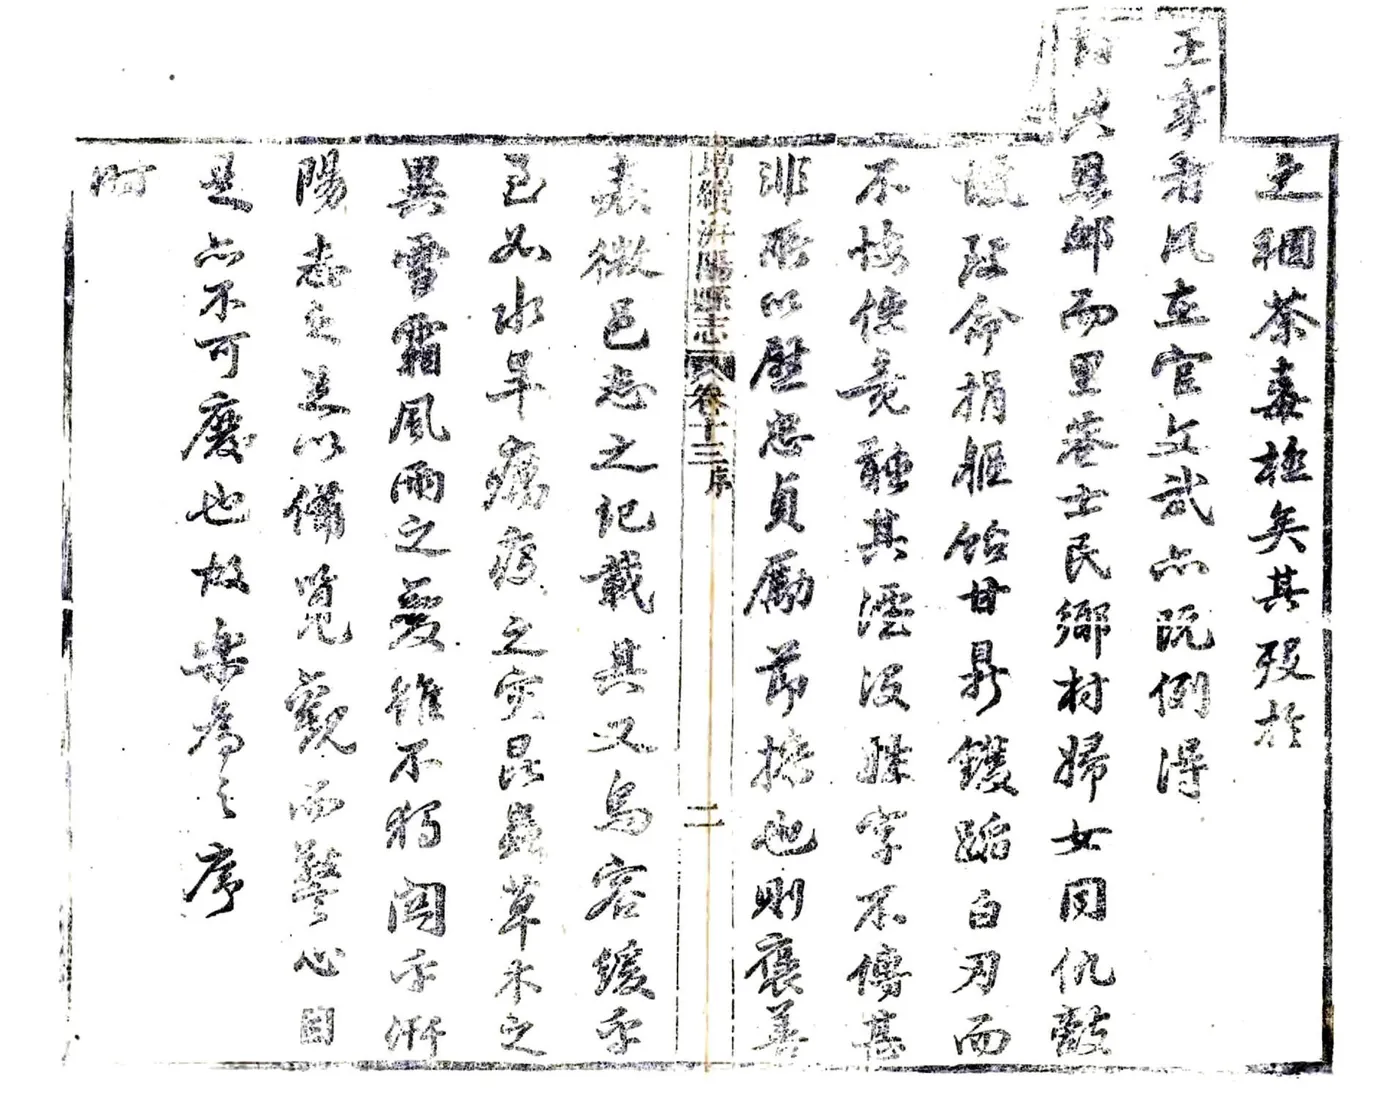 之稇荼毒極矣其歿於
王事者凡在官文武亦既例得
卹典矣而里巷士民鄉村婦女同仇敵
愾致命捐軀飴甘鼎鑊蹈白刃而
不悔使竟聽其湮沒姓字不傳甚
非所以歷忠貞勵節操也則褒善
表微邑志之記載其又烏容緩乎
至如水旱癘疫之災昆蟲草木之
異雪霜風雨之變雖不獨關乎汧
陽志之足以備覽觀而警心目
是亦不可廢也故樂為之序
時
增續汧陽縣志 卷十三 序 二